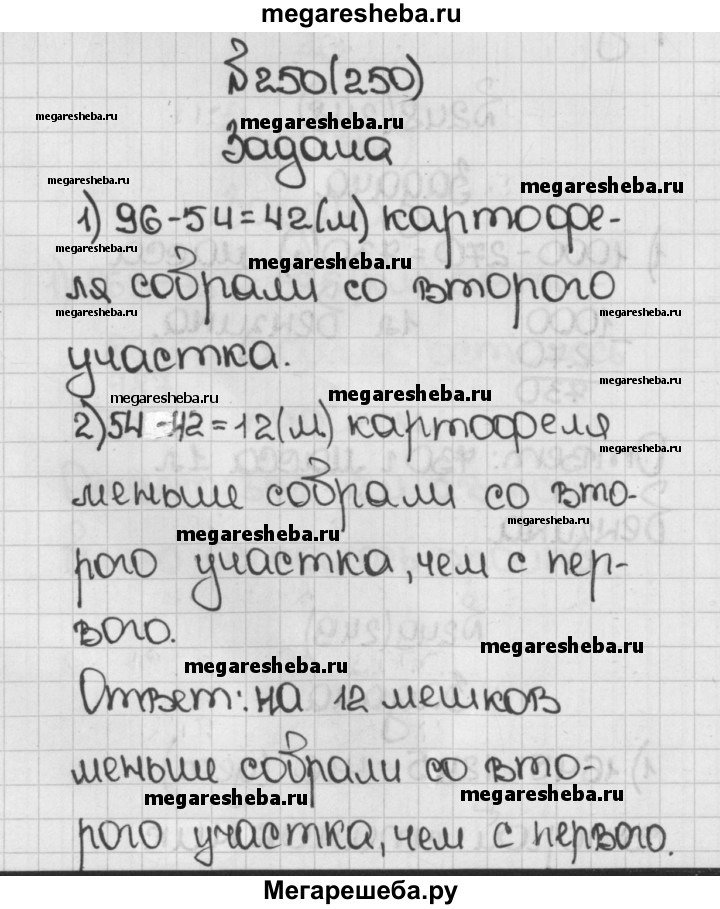 megaresheba.ru
№250(250)
megaresheba.ru
megaresheba.ru
Задача
megaresheba.ru
megaresheba.ru
1) 96-54=42(м) картофе-
megaresheba.ru
megaresheba.ru
megaresheba.ru
ля собрали со второго
megaresheba.ru
megaresheba.ru
участка.
megaresheba.ru
megaresheba.ru
megaresheba.ru
2)54-42=12(м) картофеля
megaresheba.ru
меньше собрали со вто-
megaresheba.ru
megaresheba.ru
рого участка, чем с пер-
вого.
megaresheba.ru
megaresheba.ru
Ответ: на 12 мешков
меньше собрали со вто-
megaresheba.ru
megaresheba.ru
рого участка, чем с первого.
Мегарешеба.ру